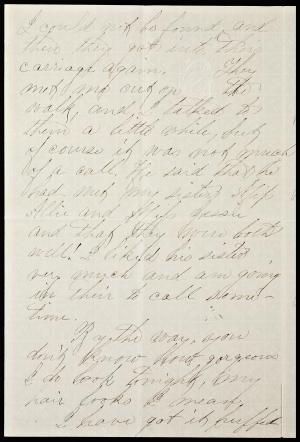 I could not be found, and
then they got into they
carriage again. They
met me out on the
walk, and I talked to
them a little while, but
of course it was not much
of a call. He said that he
had met my sister Miss
Allie and Miss Jessie
and that they were both
well! I liked his sister
very much and am going
in their to call some-
time.
By the way, you
don't know how gorgeous
I do look tonight, (my
hair looks I mean)
I have got it puffed